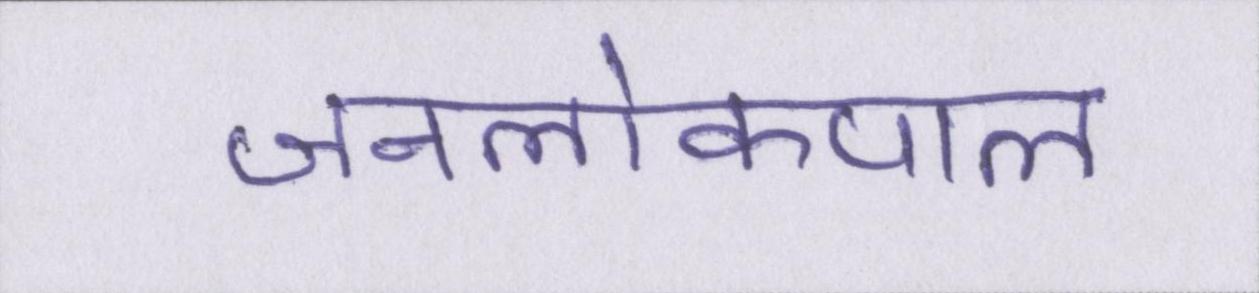 जनलोकपाल